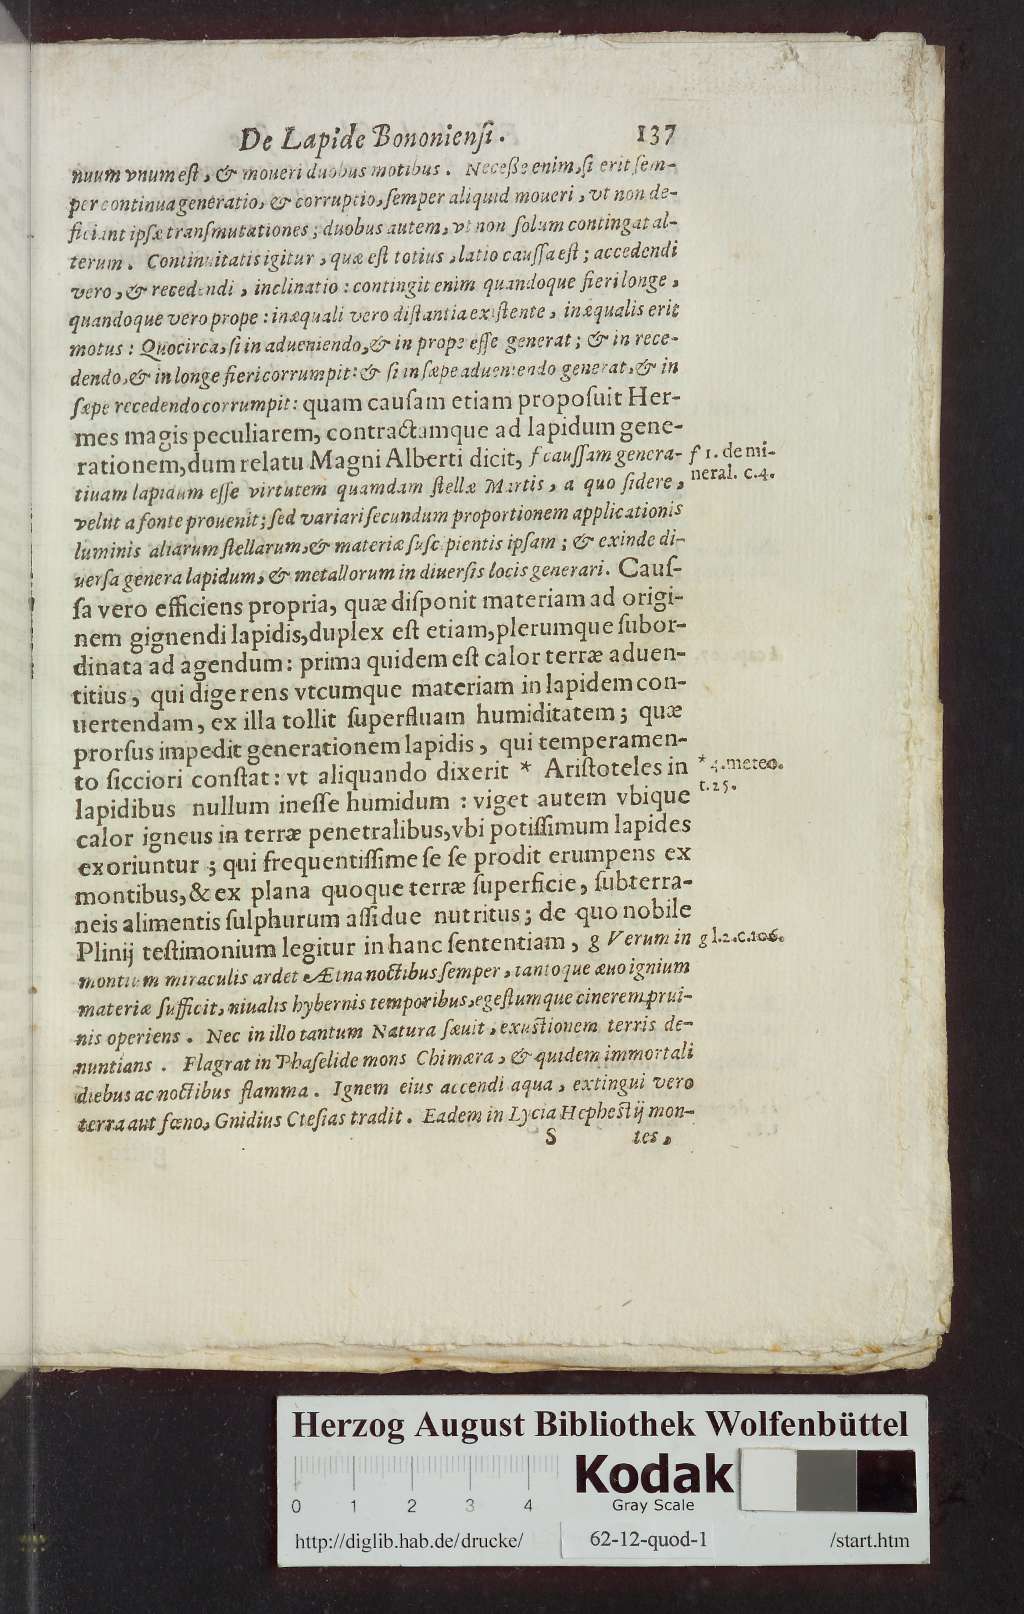 De Lapide Bononiensi. 137
nuum vnum est, & moueri duobus motibus. Necesse enim, si erit sem-
per continua generatio, & corruptio, semper aliquid moueri, vt non de-
ficiant ipsæ transmutationes; duobus autem, vt non solum contingat al-
terum. Continuitatis igitur, quæ est totius, latio caussa est; accedendi
vero, & recedendi, inclinatio: contingit enim quandoque fieri longe,
quandoque vero prope: inæquali vero distantia existente, inæqualis erit
motus: Quocirca, si in adueniendo, & in prope esse generat; & in rece-
dendo, & in longe fieri corrumpit: & si in sæpe adueniendo generat, & in
sæpe recedendo corrumpit: quam causam etiam proposuit Her-
mes magis peculiarem, contractamque ad lapidum gene-
rationem, dum relatu Magni Alberti dicit, f caussam genera-
f 1. de mi-
neral. c.4.
tiuam lapidum esse virtutem quamdam stellæ Martis, a quo sidere,
velut a fonte prouenit; sed variari secundum proportionem applicationis
luminis aliarum stellarum, & materiæ suscipientis ipsam; & exinde di-
uersa genera lapidum, & metallorum in diuersis locis generari. Caus-
sa vero efficiens propria, quæ disponit materiam ad origi-
nem gignendi lapidis, duplex est etiam, plerumque subor-
dinata ad agendum: prima quidem est calor terræ aduen-
titius, qui digerens vtcumque materiam in lapidem con-
uertendam, ex illa tollit superfluam humiditatem; quæ
prorsus impedit generationem lapidis, qui temperamen-
to sicciori constat: vt aliquando dixerit * Aristoteles in
* 4. meteo.
t.25.
lapidibus nullum inesse humidum: viget autem vbique
calor igneus in terræ penetralibus, vbi potissimum lapides
exoriuntur; qui frequentissime se se prodit erumpens ex
montibus, & ex plana quoque terræ superficie, subterra-
neis alimentis sulphurum assidue nutritus; de quo nobile
Plinij testimonium legitur in hanc sententiam, g Verum in
g l.2.c.106.
montium miraculis ardet Ætna noctibus semper, tantoque æuo ignium
materiæ sufficit, niualis hybernis temporibus, egestumque cinerem prui-
nis operiens. Nec in illo tantum Natura sæuit, exustionem terris de-
nuntians. Flagrat in Phaselide mons Chimæra, & quidem immortali
diebus ac noctibus flamma. Ignem eius accendi aqua, extingui vero
terra aut fœno, Gnidius Ctesias tradit. Eadem in Lycia Hephestij mon-
S tes,
Herzog August Bibliothek Wolfenbüttel
Kodak
Gray Scale
0 1 2 3 4
http://diglib.hab.de/drucke/ 62-12-quod-1 /start.htm